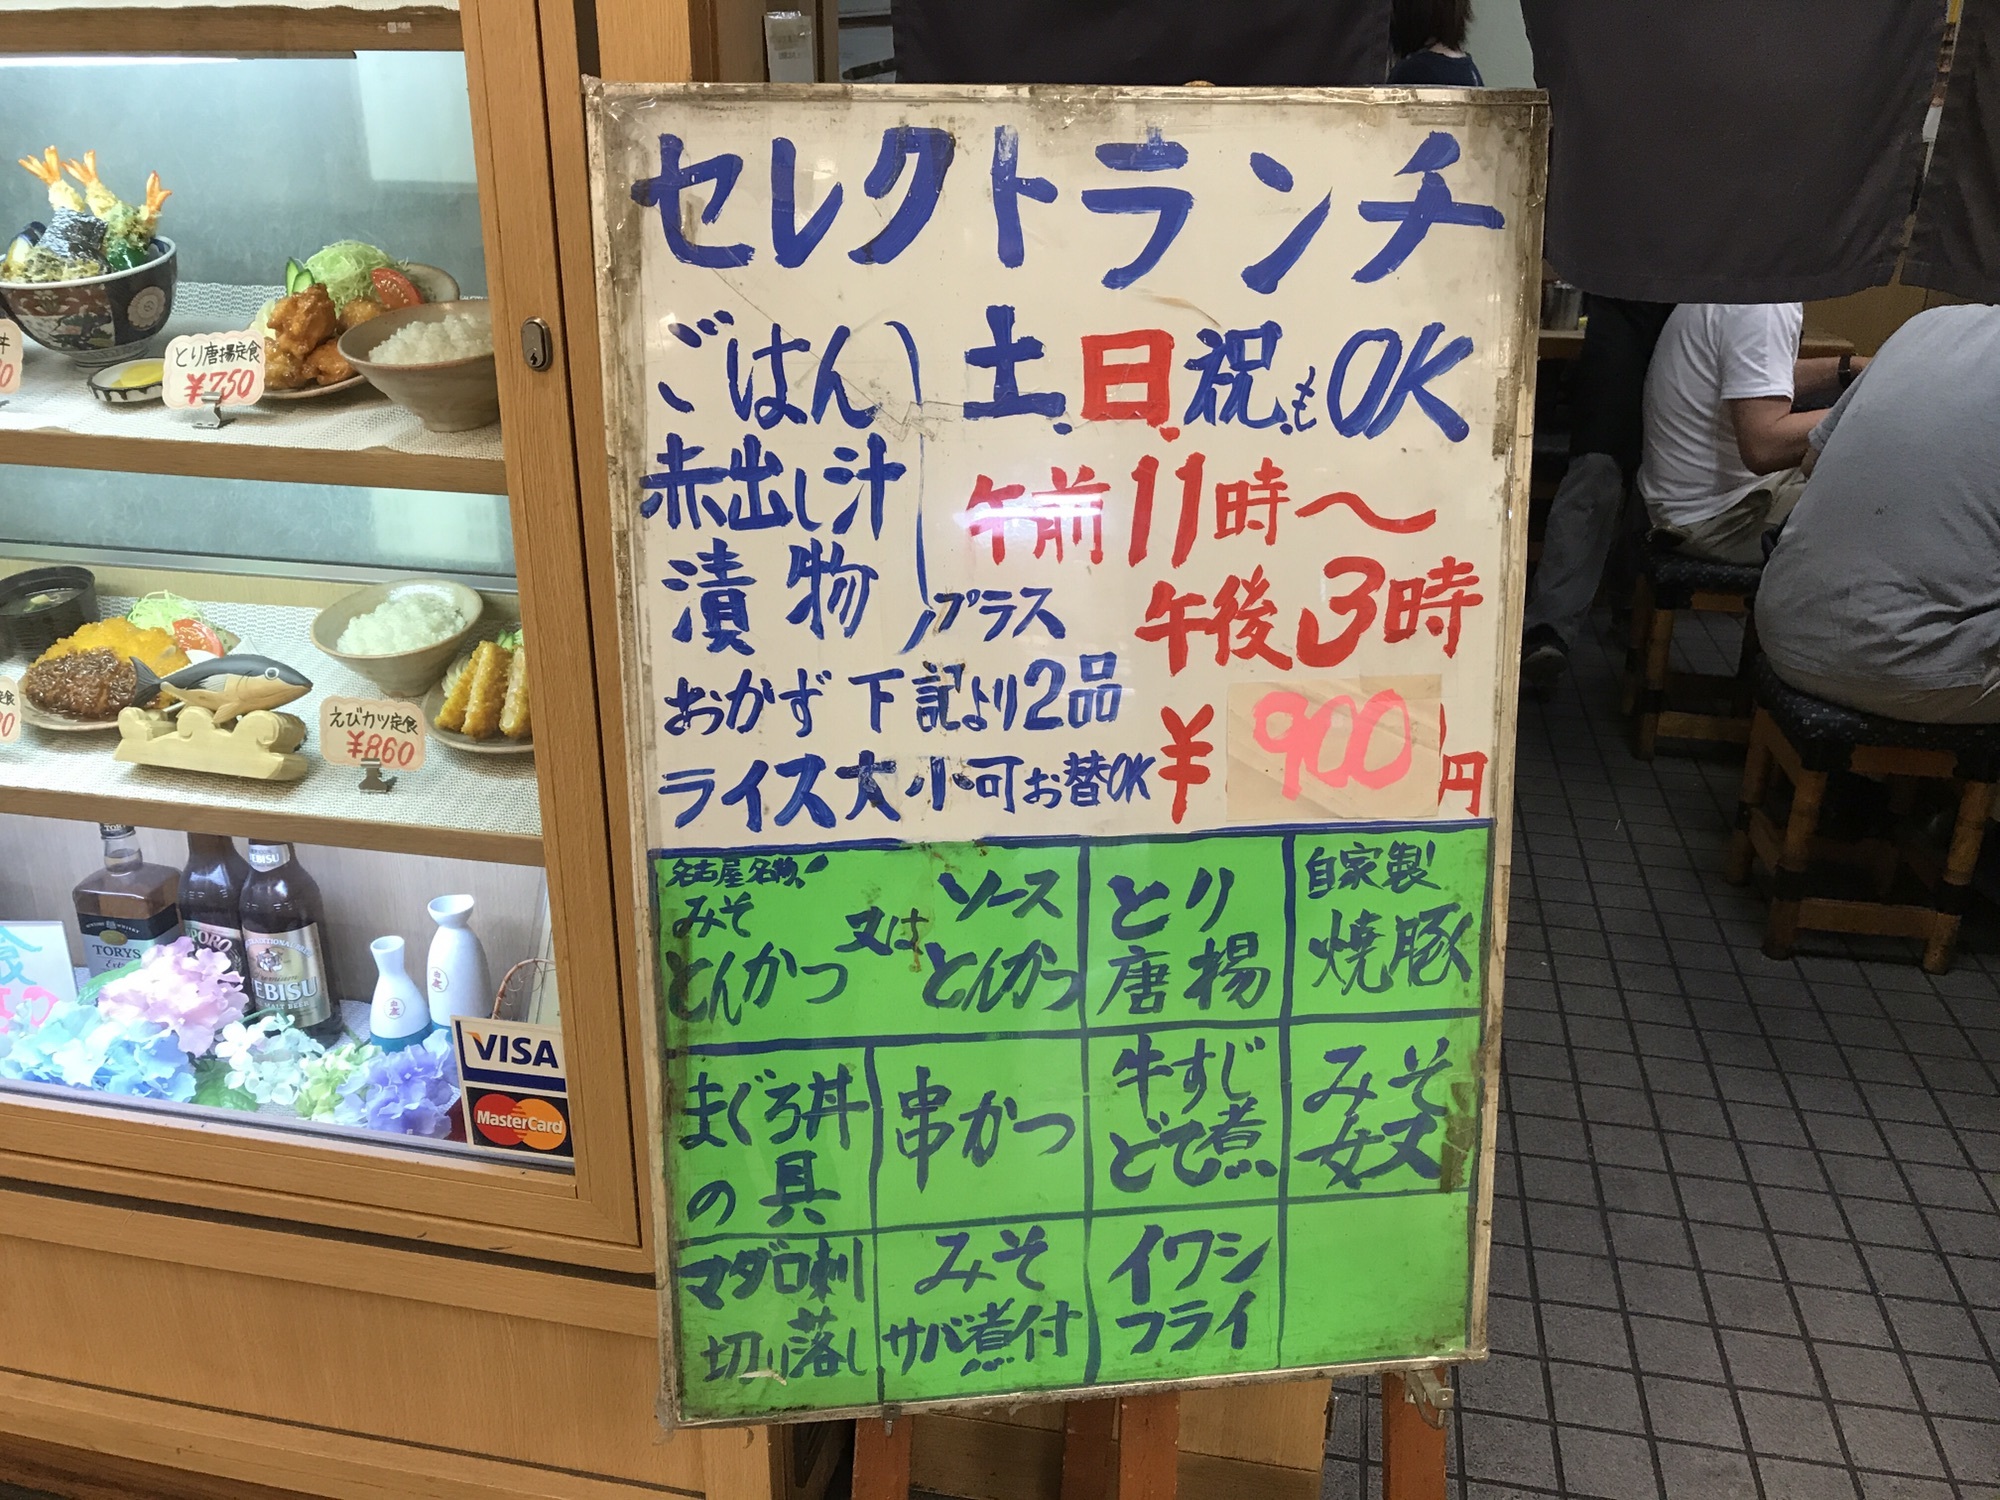 セレクトランチ
ごはん
赤出し汁
漬物
プラス
土.日.祝.もOK
午前11時〜
午後3時
おかず 下記より2品
ライス大小可お替OK
¥900円
名古屋名物!
みそ
とんかつ
又は
ソース
とんかつ
とり
唐揚
自家製!
焼豚
まぐろ丼
の具
串かつ
牛すじ
どて煮
みそ
女丈
マグロ刺
切り落し
みそ
サバ煮付
イワシ
フライ
とり唐揚定食
¥750
えびカツ定食
¥860
TORYS
Extra
EBISU
TRADITIONAL BEER
EBISU
MALT BEER
VISA
MasterCard